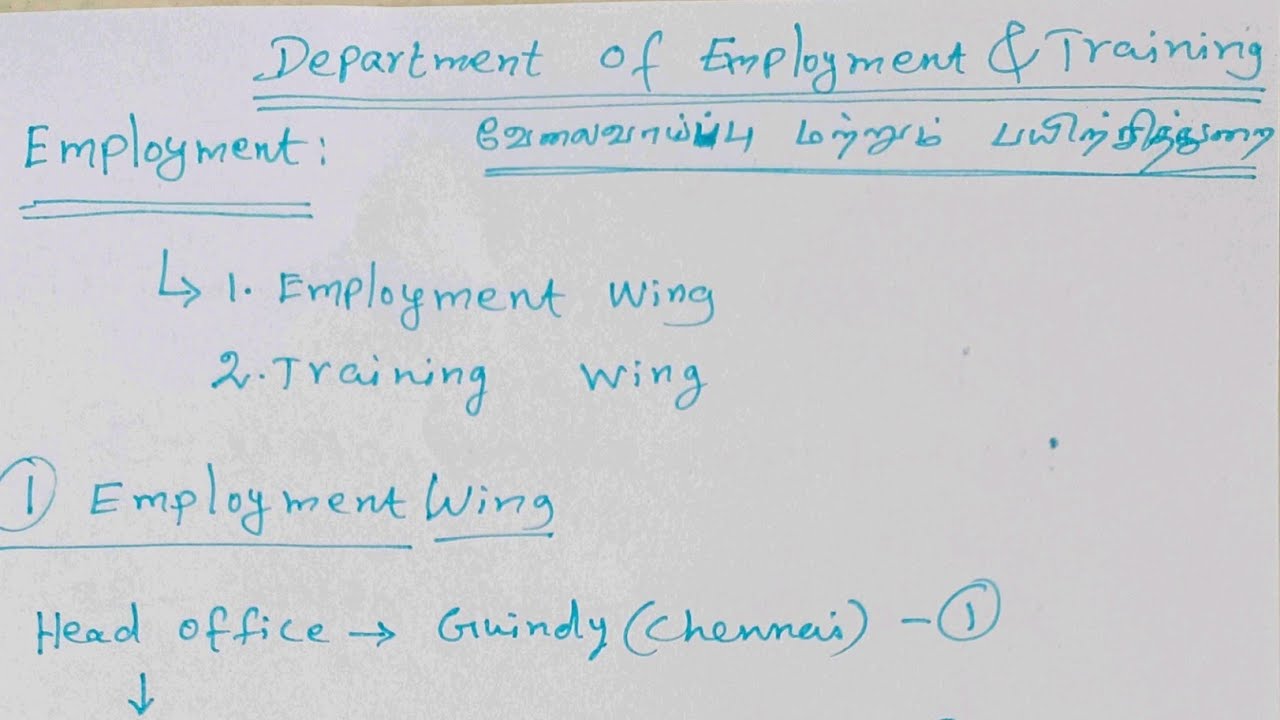 Department of Employment & Training
வேலைவாய்ப்பு மற்றும் பயிற்சித்துறை
Employment:
↳ 1. Employment Wing
2. Training Wing
① Employment Wing
Head office → Guindy (Chennai) - ①
↓